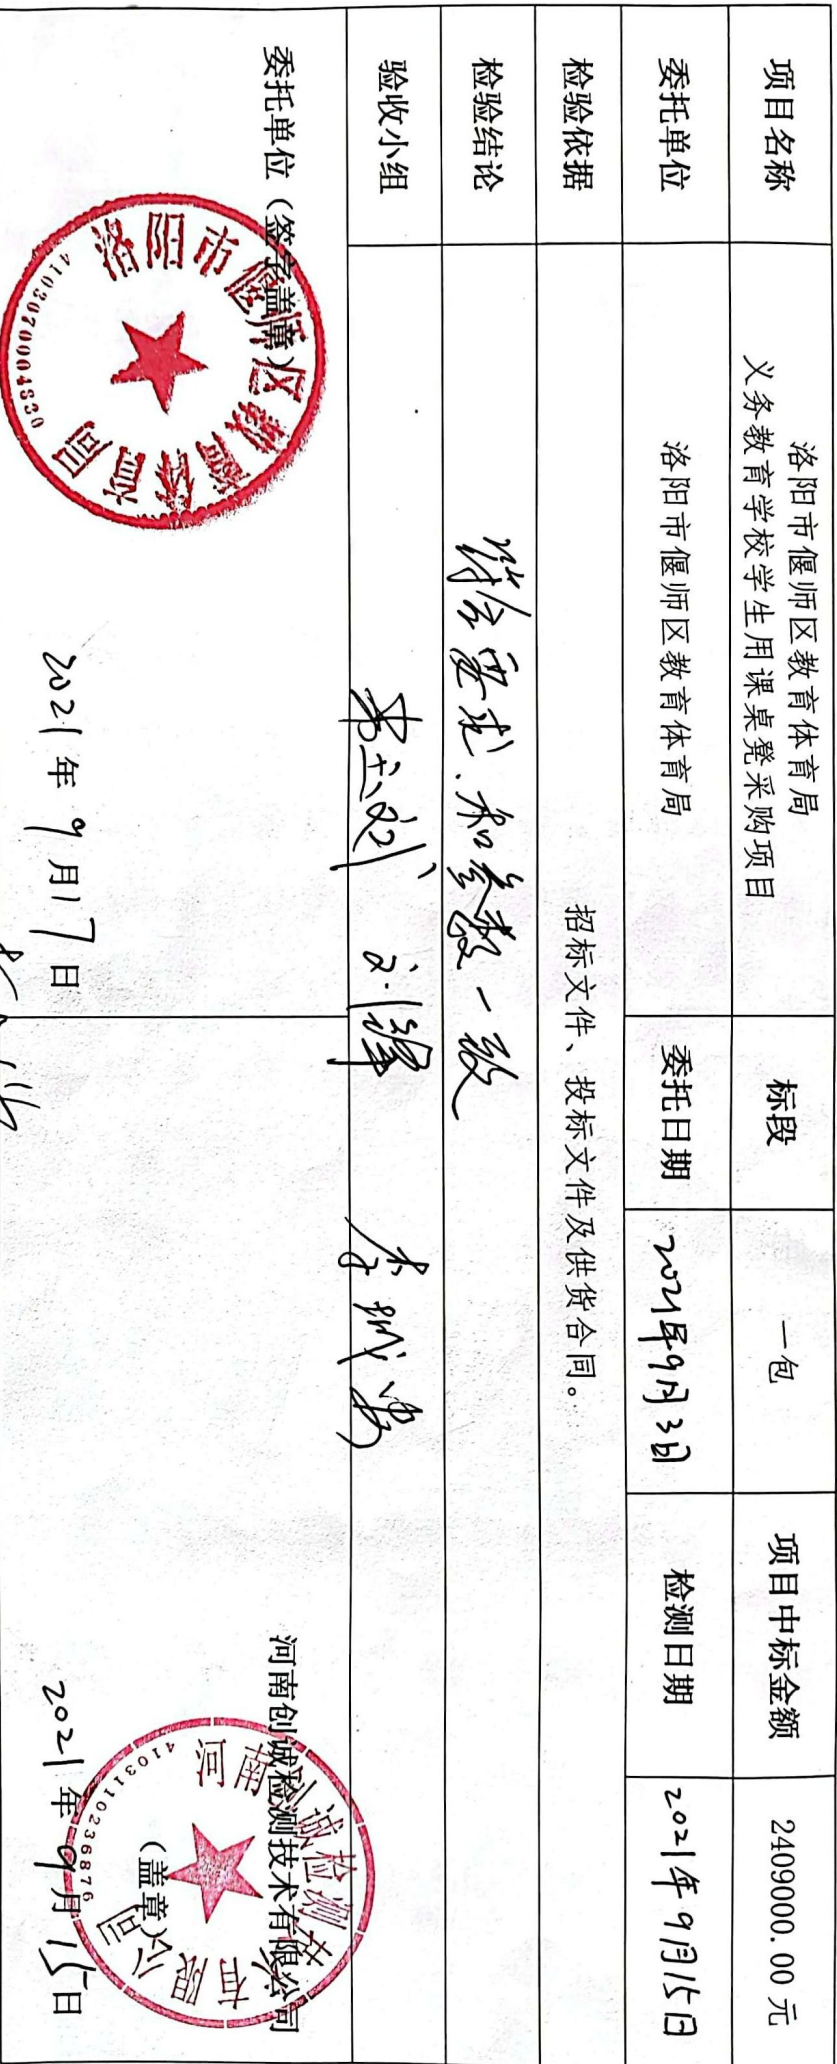 项目名称
洛阳市偃师区教育体育局
义务教育学校学生用课桌凳采购项目
标段
一包
项目中标金额
2409000.00元
委托单位
洛阳市偃师区教育体育局
委托日期
2021年9月3日
检测日期
2021年9月15日
检验依据
招标文件、投标文件及供货合同。
检验结论
符合要求.和参数一致
验收小组
委托单位（签字盖章）
洛阳市偃师区教育体育局
4103070004830
2021年9月17日
河南创诚检测技术有限公司
（盖章）
河南创诚检测技术有限公司
4103110236876
2021年9月15日